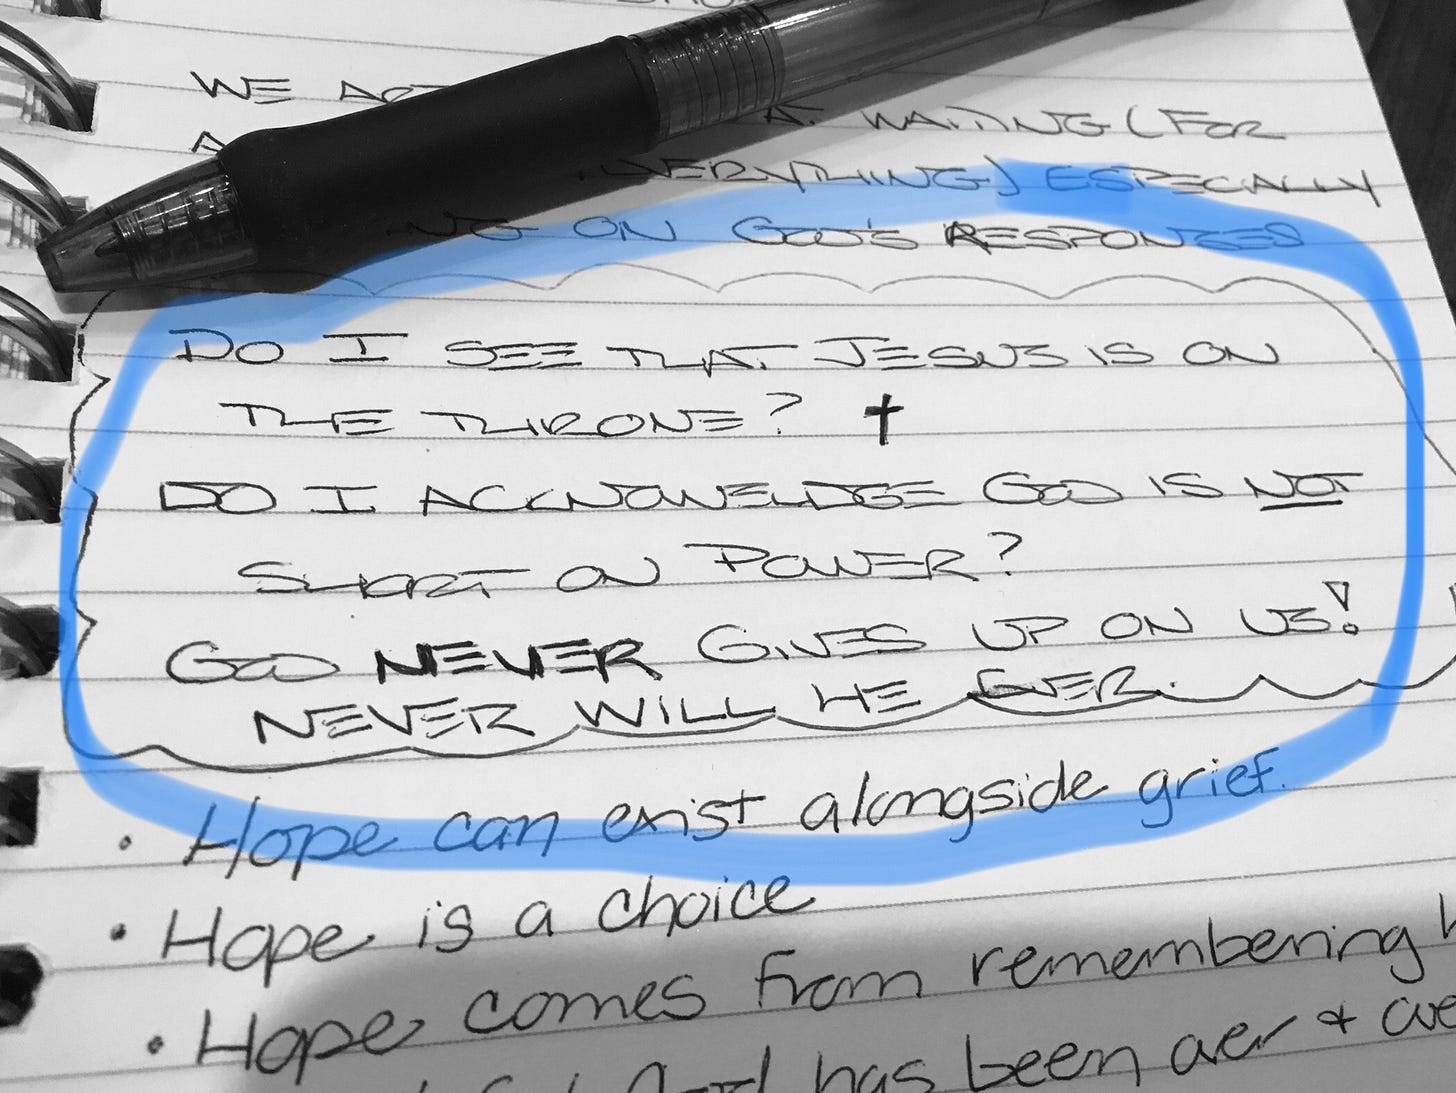 WE
A. WAITING (FOR
EVERYTHING) ESPECIALLY
ON GOD'S RESPONSES
DO I SEE THAT JESUS IS ON
THE THRONE? ✝
DO I ACKNOWELDGE GOD IS NOT
SHORT ON POWER?
GOD NEVER GIVES UP ON US!
NEVER WILL HE EVER.
• Hope can exist alongside grief.
• Hope is a choice
• Hope comes from remembering
God has been over + ove